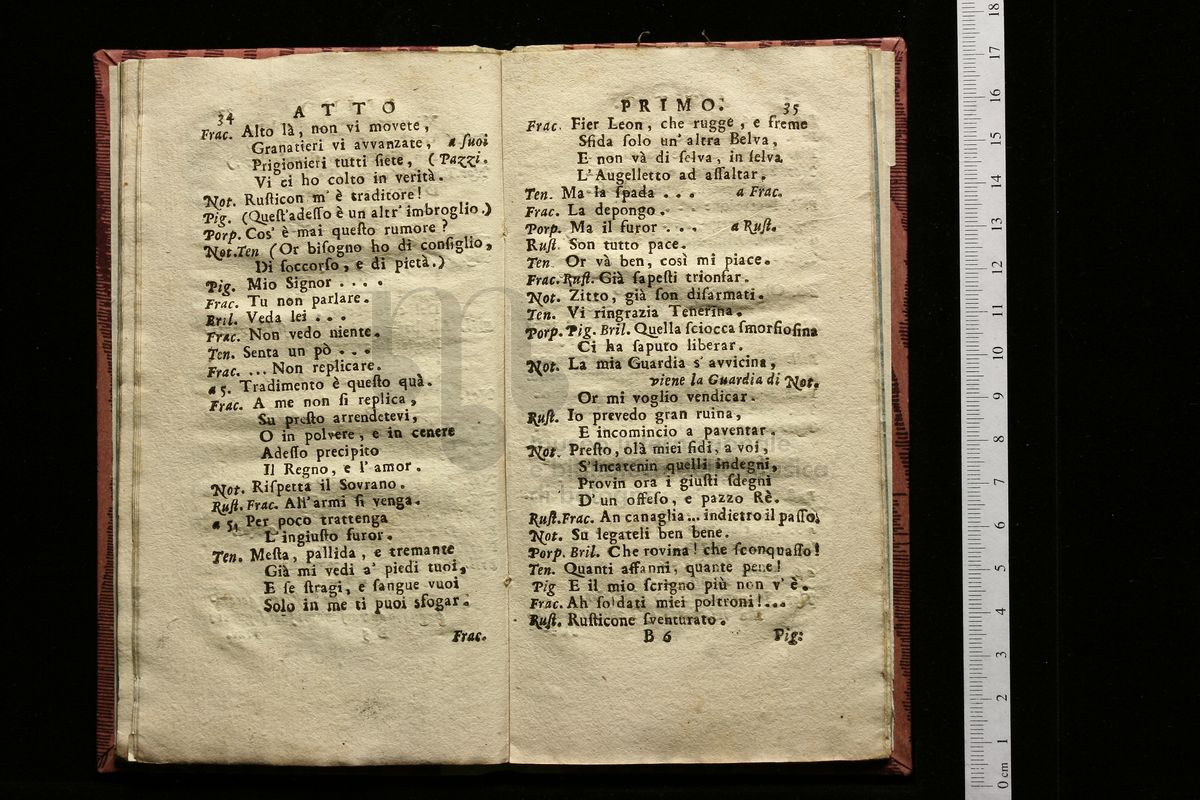 34 ATTO
Frac. Alto là, non vi movete,
Granatieri vi avvanzate, a ſuoi
Prigionieri tutti ſiete, (Pazzi.
Vi ci ho colto in verità.
Not. Ruſticon m' è traditore!
Pig. (Queſt'adeſſo è un altr' imbroglio.)
Porp. Cos' è mai queſto rumore?
Not.Ten (Or biſogno ho di conſiglio,
Di ſoccorſo, e di pietà.)
Pig. Mio Signor . . . .
Frac. Tu non parlare.
Bril. Veda lei . . .
Frac. Non vedo niente.
Ten. Senta un pò . . .
Frac. ... Non replicare.
a 5. Tradimento è queſto quà.
Frac. A me non ſi replica,
Su preſto arrendetevi,
O in polvere, e in cenere
Adeſſo precipito
Il Regno, e l' amor.
Not. Riſpetta il Sovrano.
Ruſt. Frac. All'armi ſi venga.
a 5. Per poco trattenga
L'ingiuſto furor.
Ten. Meſta, pallida, e tremante
Già mi vedi a' piedi tuoi,
E ſe ſtragi, e ſangue vuoi
Solo in me ti puoi sfogar.
Frac.
PRIMO. 35
Frac. Fier Leon, che rugge, e freme
Sfida ſolo un' altra Belva,
E non và di ſelva, in ſelva
L'Augelletto ad aſſaltar.
Ten. Ma la ſpada . . . a Frac.
Frac. La depongo.
Porp. Ma il furor . . . a Ruſt.
Ruſt. Son tutto pace.
Ten. Or và ben, così mi piace.
Frac. Ruſt. Già ſapeſti trionfar.
Not. Zitto, già ſon diſarmati.
Ten. Vi ringrazia Tenerina.
Porp. Pig. Bril. Quella ſciocca ſmorfioſina
Ci ha ſaputo liberar.
Not. La mia Guardia s' avvicina,
viene la Guardia di Not.
Or mi voglio vendicar.
Ruſt. Io prevedo gran ruina,
E incomincio a paventar.
Not. Preſto, olà miei fidi, a voi,
S'incatenin quelli indegni,
Provin ora i giuſti ſdegni
D' un offeſo, e pazzo Rè.
Ruſt.Frac. An canaglia... indietro il paſſo.
Not. Su legateli ben bene.
Porp. Bril. Che rovina! che ſconquaſſo!
Ten. Quanti affanni, quante pene!
Pig E il mio ſcrigno più non v' è.
Frac. Ah ſoldati miei poltroni!...
Ruſt. Ruſticone ſventurato.
B 6 Pig: